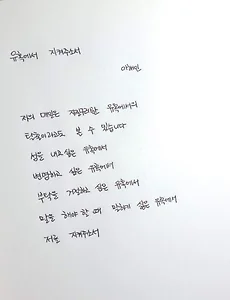 유혹에서 지켜주소서
이해인
저의 매일은 자질구레한 유혹에서의
탈출이라고도 볼 수 있습니다
성을 내고 싶은 유혹에서
변명하고 싶은 유혹에서
부탁을 거절하고 싶은 유혹에서
말을 해야 할 때 말하기 싫은 유혹에서
저를 지켜주소서